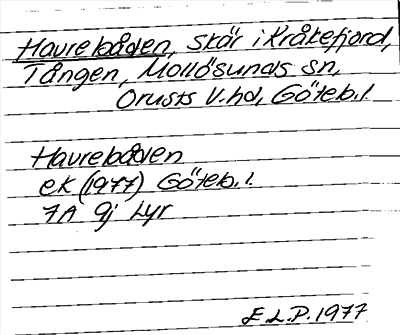 Havrebåden, skär i Kråkefjord,
Tången, Mollösunds sn,
Orusts V. hd, Göteb. l.
Havrebåden
ek (1977) Göteb. l.
7A 9j Lyr
E.L.P. 1977